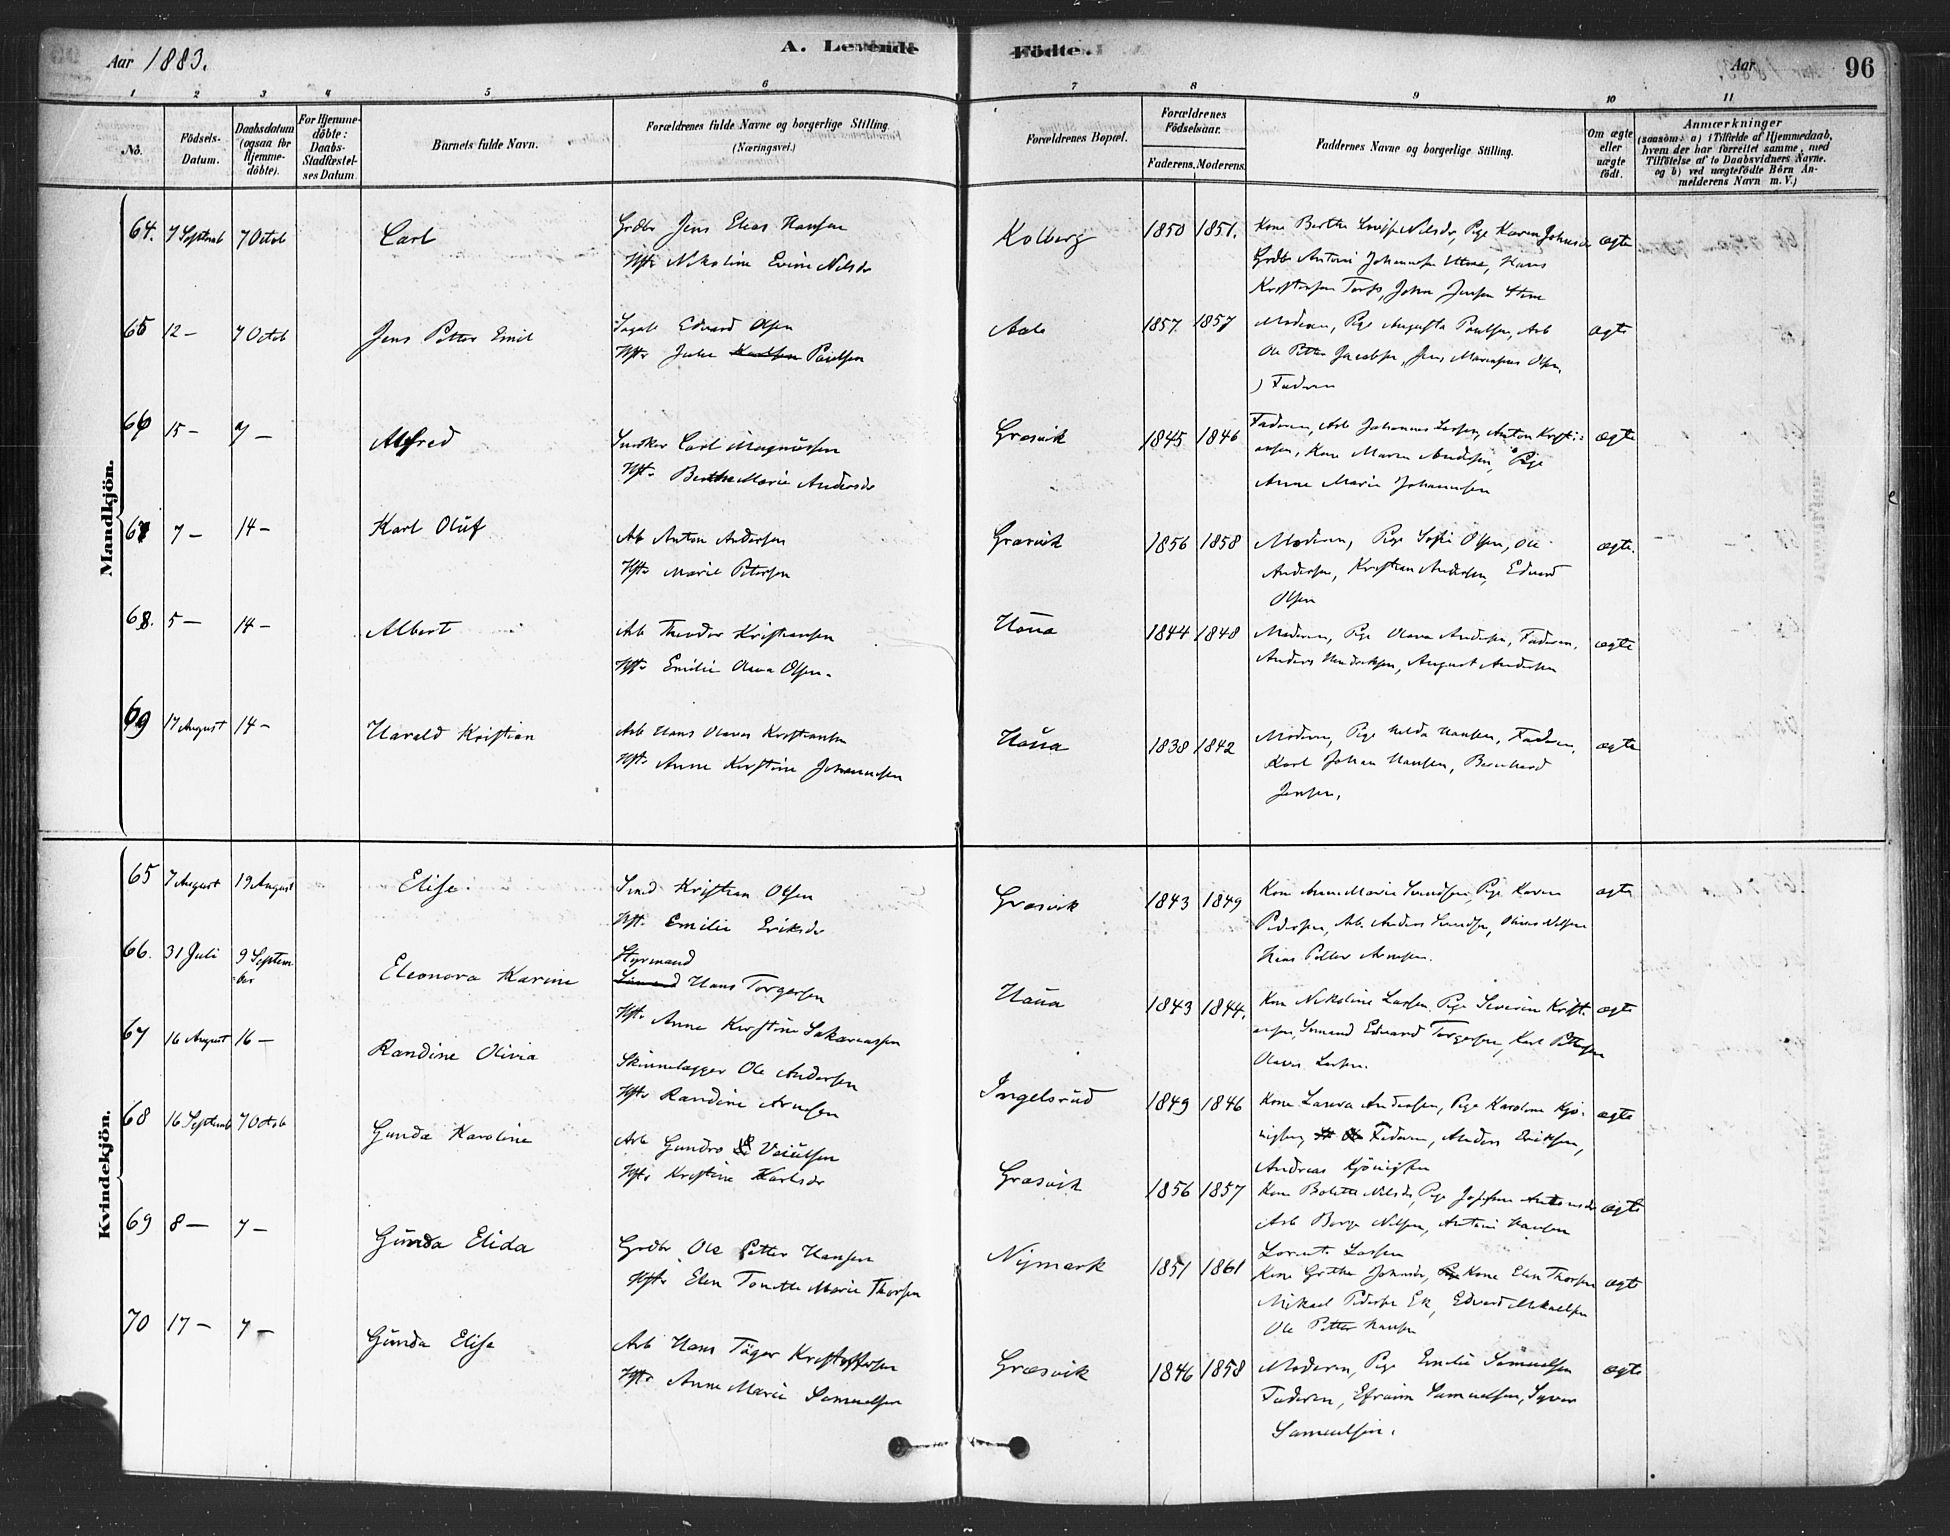 Aar 1883. A. Levende Födte. Aar 96
1 2 3 4 5 6 7 8 9 10 11
No.
Födsels-Datum.
Daabsdatum (ogsaa for Hjemme-döbte).
For Hjemme-döbte: Daabs-Stadfæstel-ses Datum.
Barnets fulde Navn.
Forældrenes fulde Navne og borgerlige Stilling. (Næringsvei.)
Forældrenes Bopæl.
Forældrenes Födselsaar.
Faderens. Moderens.
Faddernes Navne og borgerlige Stilling.
Om ægte eller uægte födt.
Anmærkninger
(saasom: a) i Tilfælde af Hjemmedaab, hvem der har forrettet samme, med Tilföielse af to Daabsvidners Navne. og b) ved uægtefödte Börn An-melderens Navn m. V.)
Mandkjön.
64. 7 Septemb 7 Octob Carl Grdbr Jens Elias Hansen Kolberg 1850 1851. Kone Berthe Nilsdr, Pige Karen Johnsdr ægte
Hstr Nikoline Evine Nilsdr Grdbr Antoni Johannesen, Hans
Kristensen Torp, John Jensen
65 12 – 7 Octob Jens Petter Emil Edvard Olsen Aale 1857. 1857 Moderen, Pige Augusta Paulsen, Arb ægte
Hstr Julie Paulsen Ole Petter Jacobsen, Jens Olsen,
Faderen
66 15 – 7 – Alfred Snedker Carl Magnussen Græsvik 1845 1846 Faderen, Arb Johannes Larsen, Anton Kristi- ægte
Hstr Berthe Marie Andersdr ansen, Kone Maren Andersen, Pige
Anne Marie Johannesen
67 7 – 14 – Karl Oluf Arb Anton Andersen Græsvik 1856 1858 Moderen, Pige Sofie Olsen, Ole ægte.
Hstr Marie Petersen Andersen, Kristian Andersen, Edvard
Olsen
68. 5 – 14 – Albert Arb Theodor Kristiansen Haua 1844 1848 Moderen, Pige Olava Andersen, Faderen, ægte
Hstr Emilie Olava Olsen. Anders Hendriksen, August Andersen
69 17 August 14 – Harald Kristian Arb Hans Olavus Kristiansen Haua 1838 1842 Moderen, Pige Hilda Hansen, Faderen, ægte
Hstr Anne Kirstine Johannesen Karl Johan Hansen, Bernhard
Jensen,
Kvindekjön.
65 7 August 19 August Elise Smd Kristian Olsen Græsvik 1843 1849 Kone Anne Marie, Pige Karen ægte
Hstr Emilie Eriksdr Pedersen, Arb. Anders, Nilsen
Petter Arnesen.
66. 31 Juli 9 Septem-ber Eleonora Karine Styrmand Hans Torgersen Haua 1843 1844. Kone Nikoline Larsen, Pige Severine Kristi- ægte
Hstr Anne Kirstine Sakariassen ansen, Sømand Edvard Torgersen, Karl
Olaves Larsen.
67 16 August 16 – Randine Olivia Skinnelægger Ole Andersen Ingelsrud 1849 1846 Kone Andersen, Pige Karoline Kjö- ægte
Hstr Randine Arnesen nigsen, Faderen, Anders Eriksen,
Andreas Kjönigsen
68 16 Septemb 7 Octob Gunda Karoline Arb Gundro Græsvik 1856 1857 Kone Bolette Nilsdr, Pige Josefine ægte
Hstr Kristine Karlsdr Arb Borge Nilsen, Antoni Hansen
Lorents Larsen
69 8 – 7 – Gunda Elida Grdbr Ole Petter Hansen Nymark 1851 1861 Kone Grethe Johnsdr, Kone Elen Thorsen ægte
Hstr Elen Tonette Marie Thorsen Mikael Pedersen Ek, Edvard Mikaelsen
Ole Petter Hansen
70 17 – 7 – Gunda Elise Arb Hans Kristoffersen Græsvik 1846 1858 Moderen, Pige Emilie Samuelsen ægte
Hstr Anne Marie Samuelsen Faderen, Efraim Samuelsen, Syver
Samuelsen.